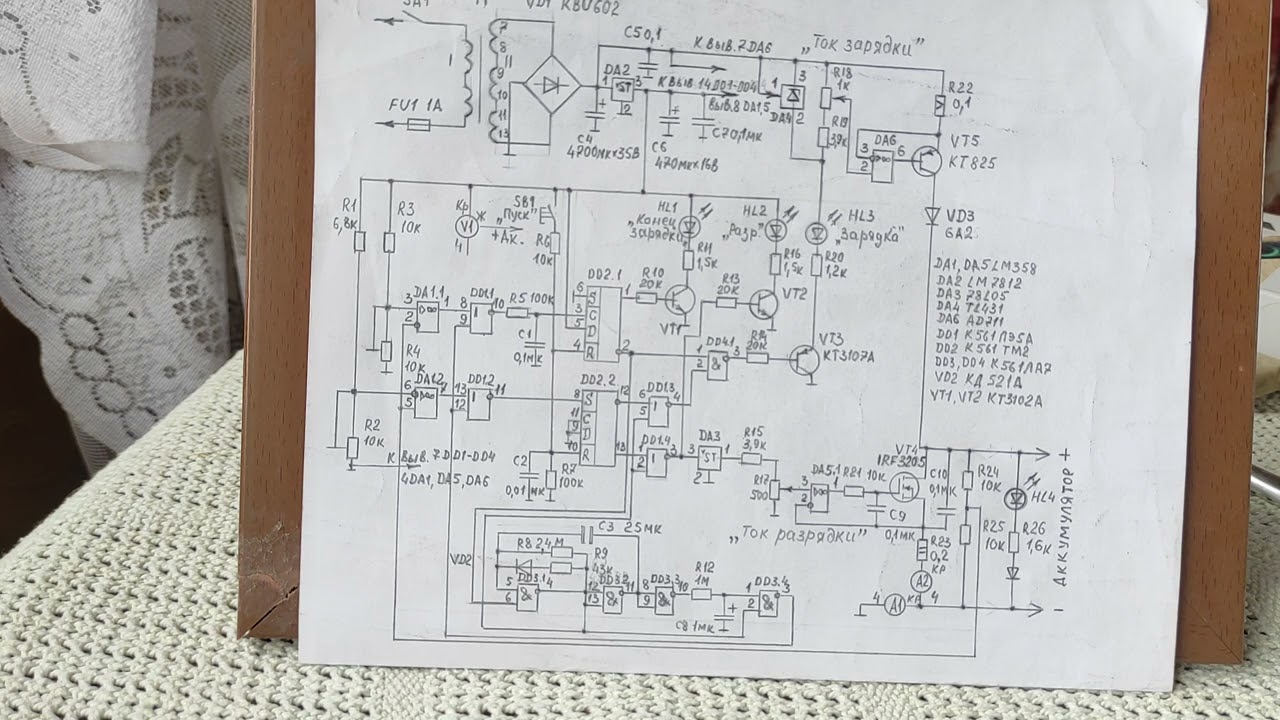 VD1 KBU602
FU1 1A
C5 0,1
К ВЫВ.7 DA6
„Ток зарядки"
DA2
К ВЫВ.14 DD1-DD4
ВЫВ.8 DA1,5
DA4
R18
1К
R19
3,9К
R22
0,1
C4
4700мк×35В
C6
470мк×16В
C7 0,1мк
DA6
VT5
КТ825
VD3
6A2
R1
6,8К
R3
10К
Кр
V1
SB1
„Пуск"
+Ак.
R6
10К
HL1
„Конец
зарядки"
R11
1,5К
HL2
„Разр"
R16
1,5К
HL3
„Зарядка"
R20
1,2К
DA1, DA5 LM358
DA2 LM7812
DA3 78L05
DA4 TL431
DA6 AD711
DD1 К561ЛЭ5А
DD2 К561 ТМ2
DD3, DD4 К561ЛА7
VD2 КД 521А
VT1, VT2 КТ3102А
DA1.1
DD1.1
R5 100К
DD2.1
R10
20К
VT1
R13
20К
VT2
C1
0,1мк
R4
10К
DA1.2
DD1.2
DD2.2
DD1.3
DD4.1
R14
20К
VT3
КТ3107А
R2
10К
К ВЫВ. 7 DD1-DD4
4DA1, DA5, DA6
C2
0,01мк
R7
100К
DD1.4
DA3
R15
3,9К
R17
500
DA5.1
R21 10К
VT4
IRF3205
C10
0,1мк
R24
10К
HL4
R25
10К
R26
1,6К
C9
0,1мк
„Ток разрядки"
R23
0,2
КР
A2
A1
АККУМУЛЯТОР
+
−
VD2
C3 25мк
R8 2,4М
R9
43К
DD3.1
DD3.2
DD3.3
R12
1М
C8 1мк
DD3.4